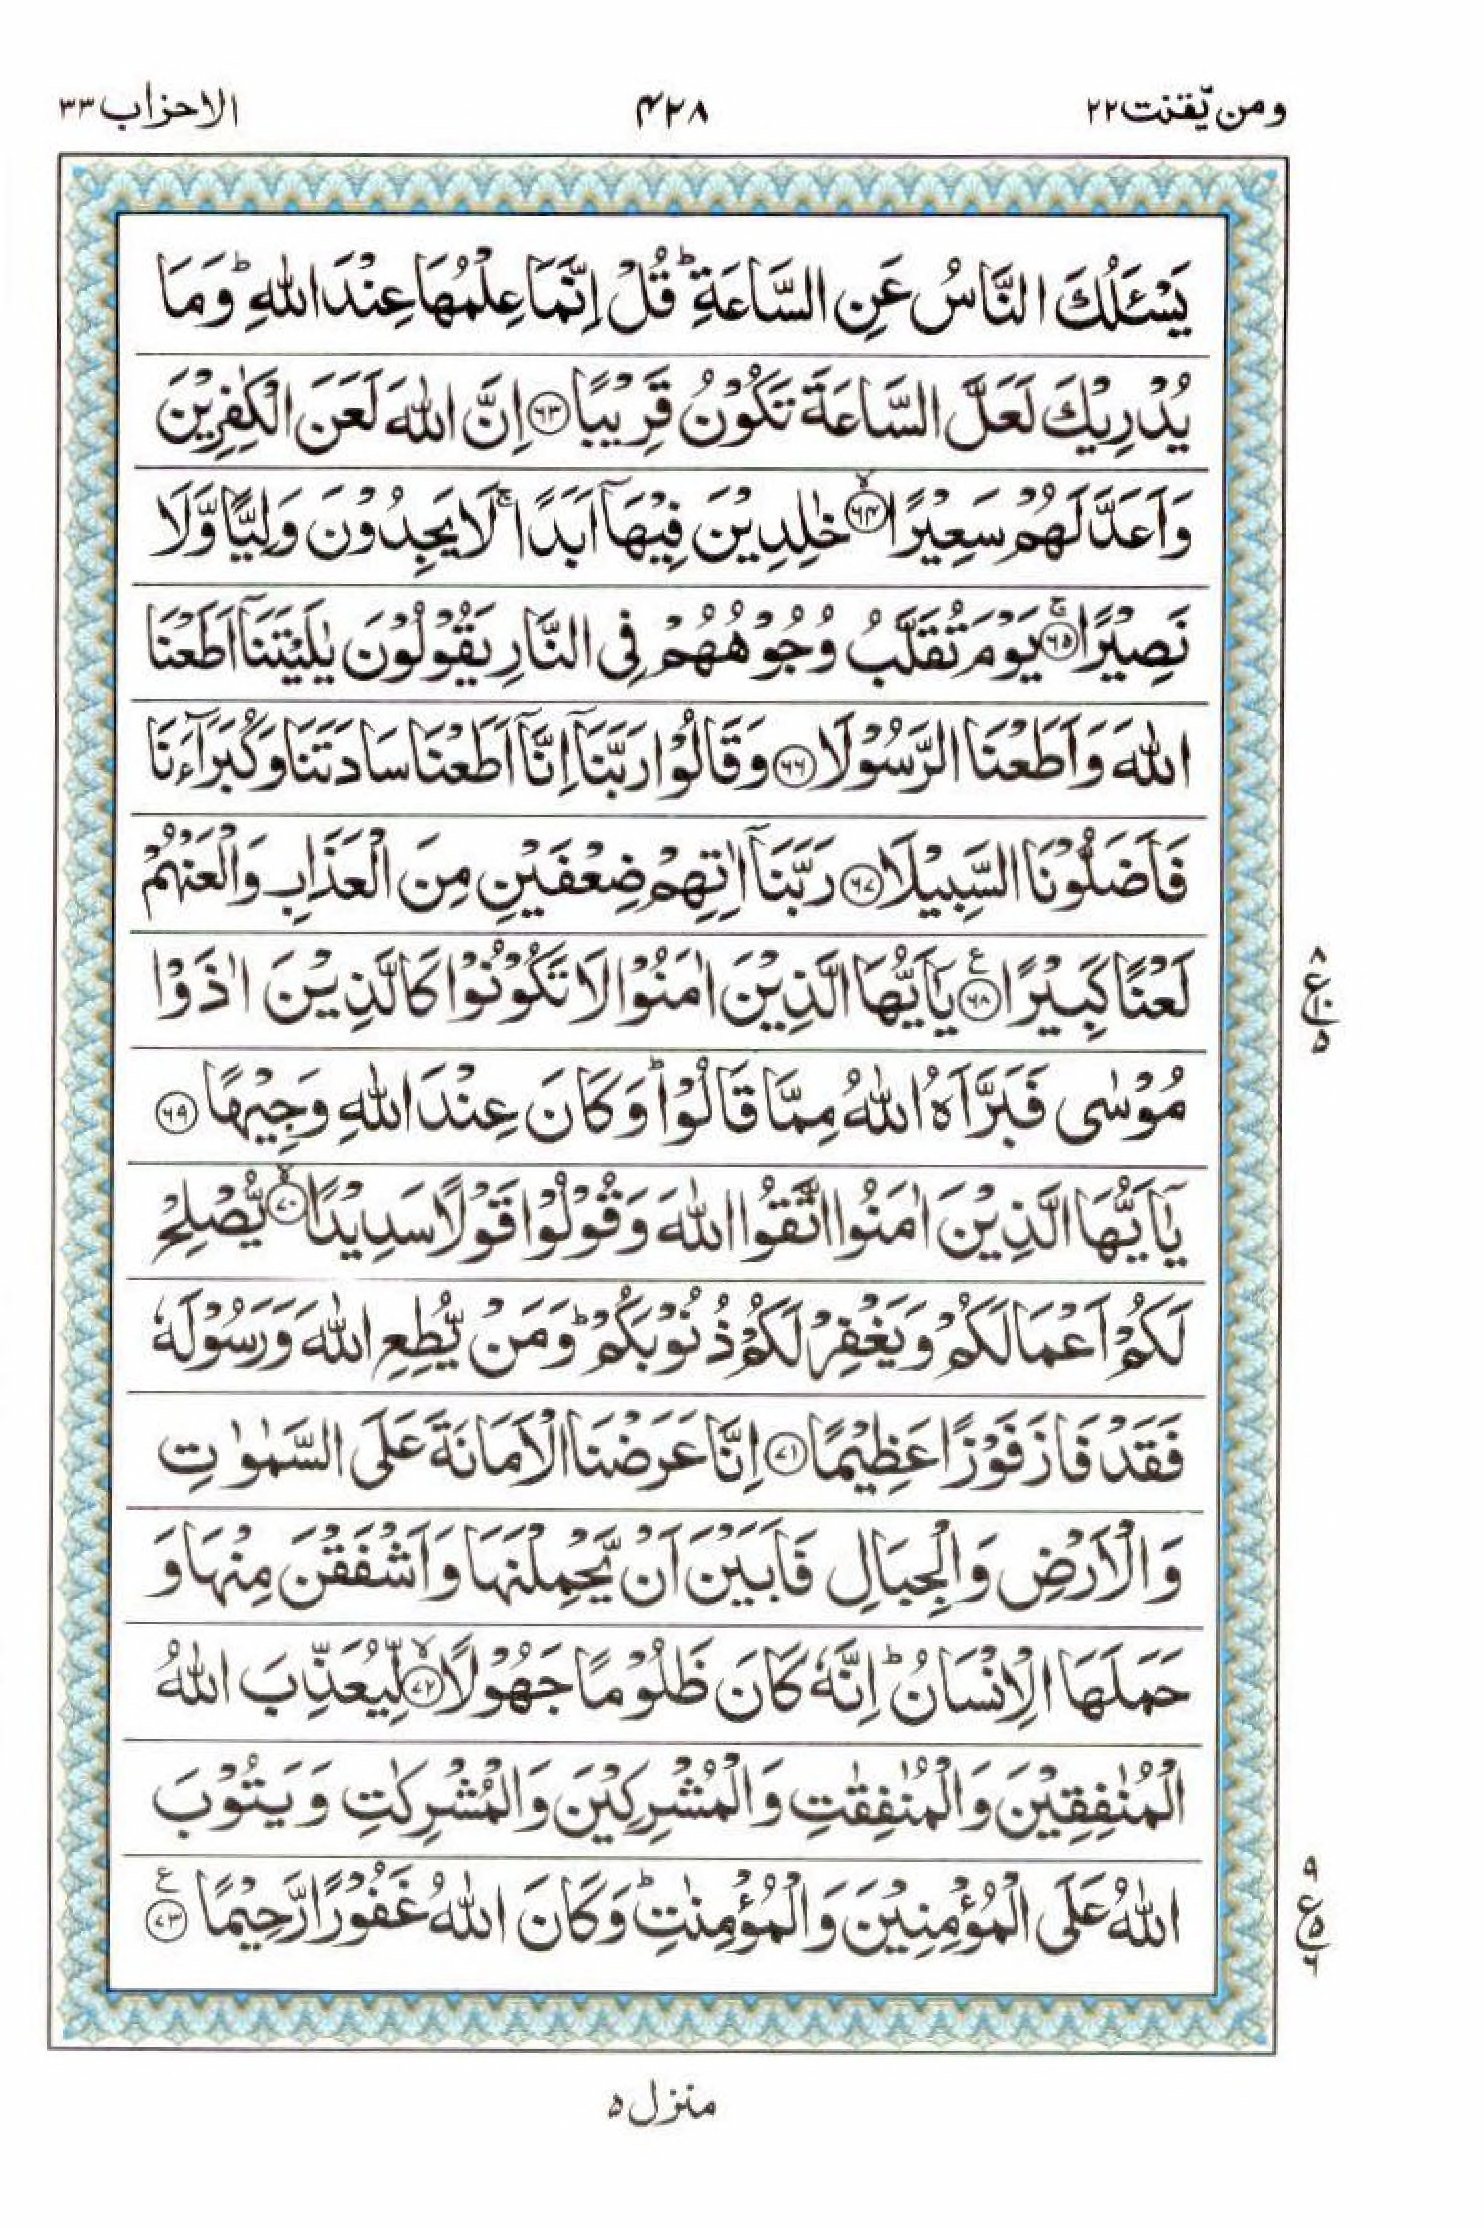 ومن يّقنت ٢٢
٤٢٨
الاحزاب ٣٣
يَسْـَٔلُكَ النَّاسُ عَنِ السَّاعَةِ ؕ قُلْ اِنَّمَا عِلْمُهَا عِنْدَ اللّٰهِ ؕ وَمَا
يُدْرِيْكَ لَعَلَّ السَّاعَةَ تَكُوْنُ قَرِيْبًا ﴿۶۳﴾ اِنَّ اللّٰهَ لَعَنَ الْكٰفِرِيْنَ
وَاَعَدَّ لَهُمْ سَعِيْرًا ﴿۶۴﴾ۙ خٰلِدِيْنَ فِيْهَاۤ اَبَدًا ۚ لَا يَجِدُوْنَ وَلِيًّا وَّلَا
نَصِيْرًا ﴿۶۵﴾ۚ يَوْمَ تُقَلَّبُ وُجُوْهُهُمْ فِى النَّارِ يَقُوْلُوْنَ يٰلَيْتَنَاۤ اَطَعْنَا
اللّٰهَ وَاَطَعْنَا الرَّسُوْلَا ﴿۶۶﴾ وَقَالُوْا رَبَّنَاۤ اِنَّاۤ اَطَعْنَا سَادَتَنَا وَكُبَرَآءَنَا
فَاَضَلُّوْنَا السَّبِيْلَا ﴿۶۷﴾ رَبَّنَاۤ اٰتِهِمْ ضِعْفَيْنِ مِنَ الْعَذَابِ وَالْعَنْهُمْ
لَعْنًا كَبِيْرًا ﴿۶۸﴾ع يٰۤاَيُّهَا الَّذِيْنَ اٰمَنُوْا لَا تَكُوْنُوْا كَالَّذِيْنَ اٰذَوْا
٨
ع
١٠
٥
مُوْسٰى فَبَرَّاَهُ اللّٰهُ مِمَّا قَالُوْا ؕ وَكَانَ عِنْدَ اللّٰهِ وَجِيْهًا ﴿۶۹﴾
يٰۤاَيُّهَا الَّذِيْنَ اٰمَنُوا اتَّقُوا اللّٰهَ وَقُوْلُوْا قَوْلًا سَدِيْدًا ﴿۷۰﴾ۙ يُّصْلِحْ
لَكُمْ اَعْمَالَكُمْ وَيَغْفِرْ لَكُمْ ذُنُوْبَكُمْ ؕ وَمَنْ يُّطِعِ اللّٰهَ وَرَسُوْلَهٗ
فَقَدْ فَازَ فَوْزًا عَظِيْمًا ﴿۷۱﴾ اِنَّا عَرَضْنَا الْاَمَانَةَ عَلَى السَّمٰوٰتِ
وَالْاَرْضِ وَالْجِبَالِ فَاَبَيْنَ اَنْ يَّحْمِلْنَهَا وَاَشْفَقْنَ مِنْهَا وَ
حَمَلَهَا الْاِنْسَانُ ؕ اِنَّهٗ كَانَ ظَلُوْمًا جَهُوْلًا ﴿۷۲﴾ۙ لِّيُعَذِّبَ اللّٰهُ
الْمُنٰفِقِيْنَ وَالْمُنٰفِقٰتِ وَالْمُشْرِكِيْنَ وَالْمُشْرِكٰتِ وَيَتُوْبَ
اللّٰهُ عَلَى الْمُؤْمِنِيْنَ وَالْمُؤْمِنٰتِ ؕ وَكَانَ اللّٰهُ غَفُوْرًا رَّحِيْمًا ﴿۷۳﴾ع
٩
ع
٥
٦
منزل ٥